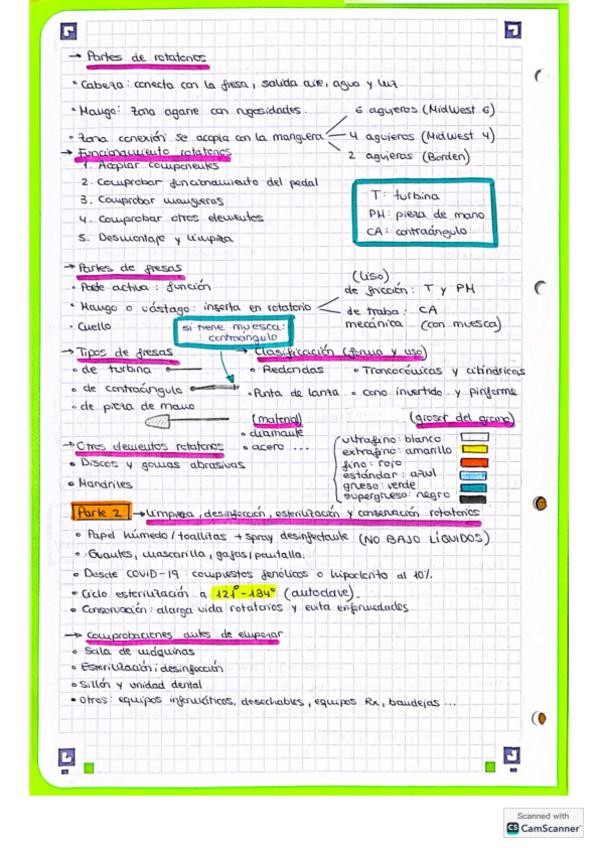 → Partes de rotatorios
• Cabeza: conecta con la fresa, salida aire, agua y luz
• Mango: zona agarre con rugosidades.
6 agujeros (Midwest 6)
• Zona conexión se acopla con la manguera
4 agujeros (Midwest 4)
2 agujeros (Borden)
→ Funcionamiento rotatorios
1. Acoplar componentes
2. Comprobar funcionamiento del pedal
3. Comprobar mangueras
4. Comprobar otros elementos
5. Desmontaje y limpieza
T: turbina
PM: pieza de mano
CA: contraángulo
→ Partes de fresas
• Parte activa: función
• Mango o vástago: inserta en rotatorio
(Liso)
de fricción: T y PM
de traba: CA
mecánica (con muesca)
• Cuello
si tiene muesca:
contraángulo
→ Tipos de fresas
• de turbina
• de contraángulo
• de pieza de mano
→ Clasificación (forma y uso)
• Redondas • Troncocónicas y cilíndricas
• Punta de lanza • cono invertido y piriforme
(material)
• diamante
• acero ...
(grosor del grano)
ultrafino: blanco
extrafino: amarillo
fino: rojo
estándar: azul
grueso: verde
supergrueso: negro
→ Otros elementos rotatorios
• Discos y gomas abrasivas
• Mandriles
Parte 2 → Limpieza, desinfección, esterilización y conservación rotatorios
• Papel húmedo/toallitas + spray desinfectante (NO BAJO LÍQUIDOS)
• Guantes, mascarilla, gafas/pantalla.
• Desde COVID-19: compuestos fenólicos o hipoclorito al 10%.
• Ciclo esterilización a 121° - 134° (autoclave).
• Conservación: alarga vida rotatorios y evita enfermedades
→ Comprobaciones antes de empezar
• Sala de máquinas
• Esterilización; desinfección
• Sillón y unidad dental
• Otros: equipos informáticos, desechables, equipos Rx, bandejas ...
Scanned with
CS CamScanner